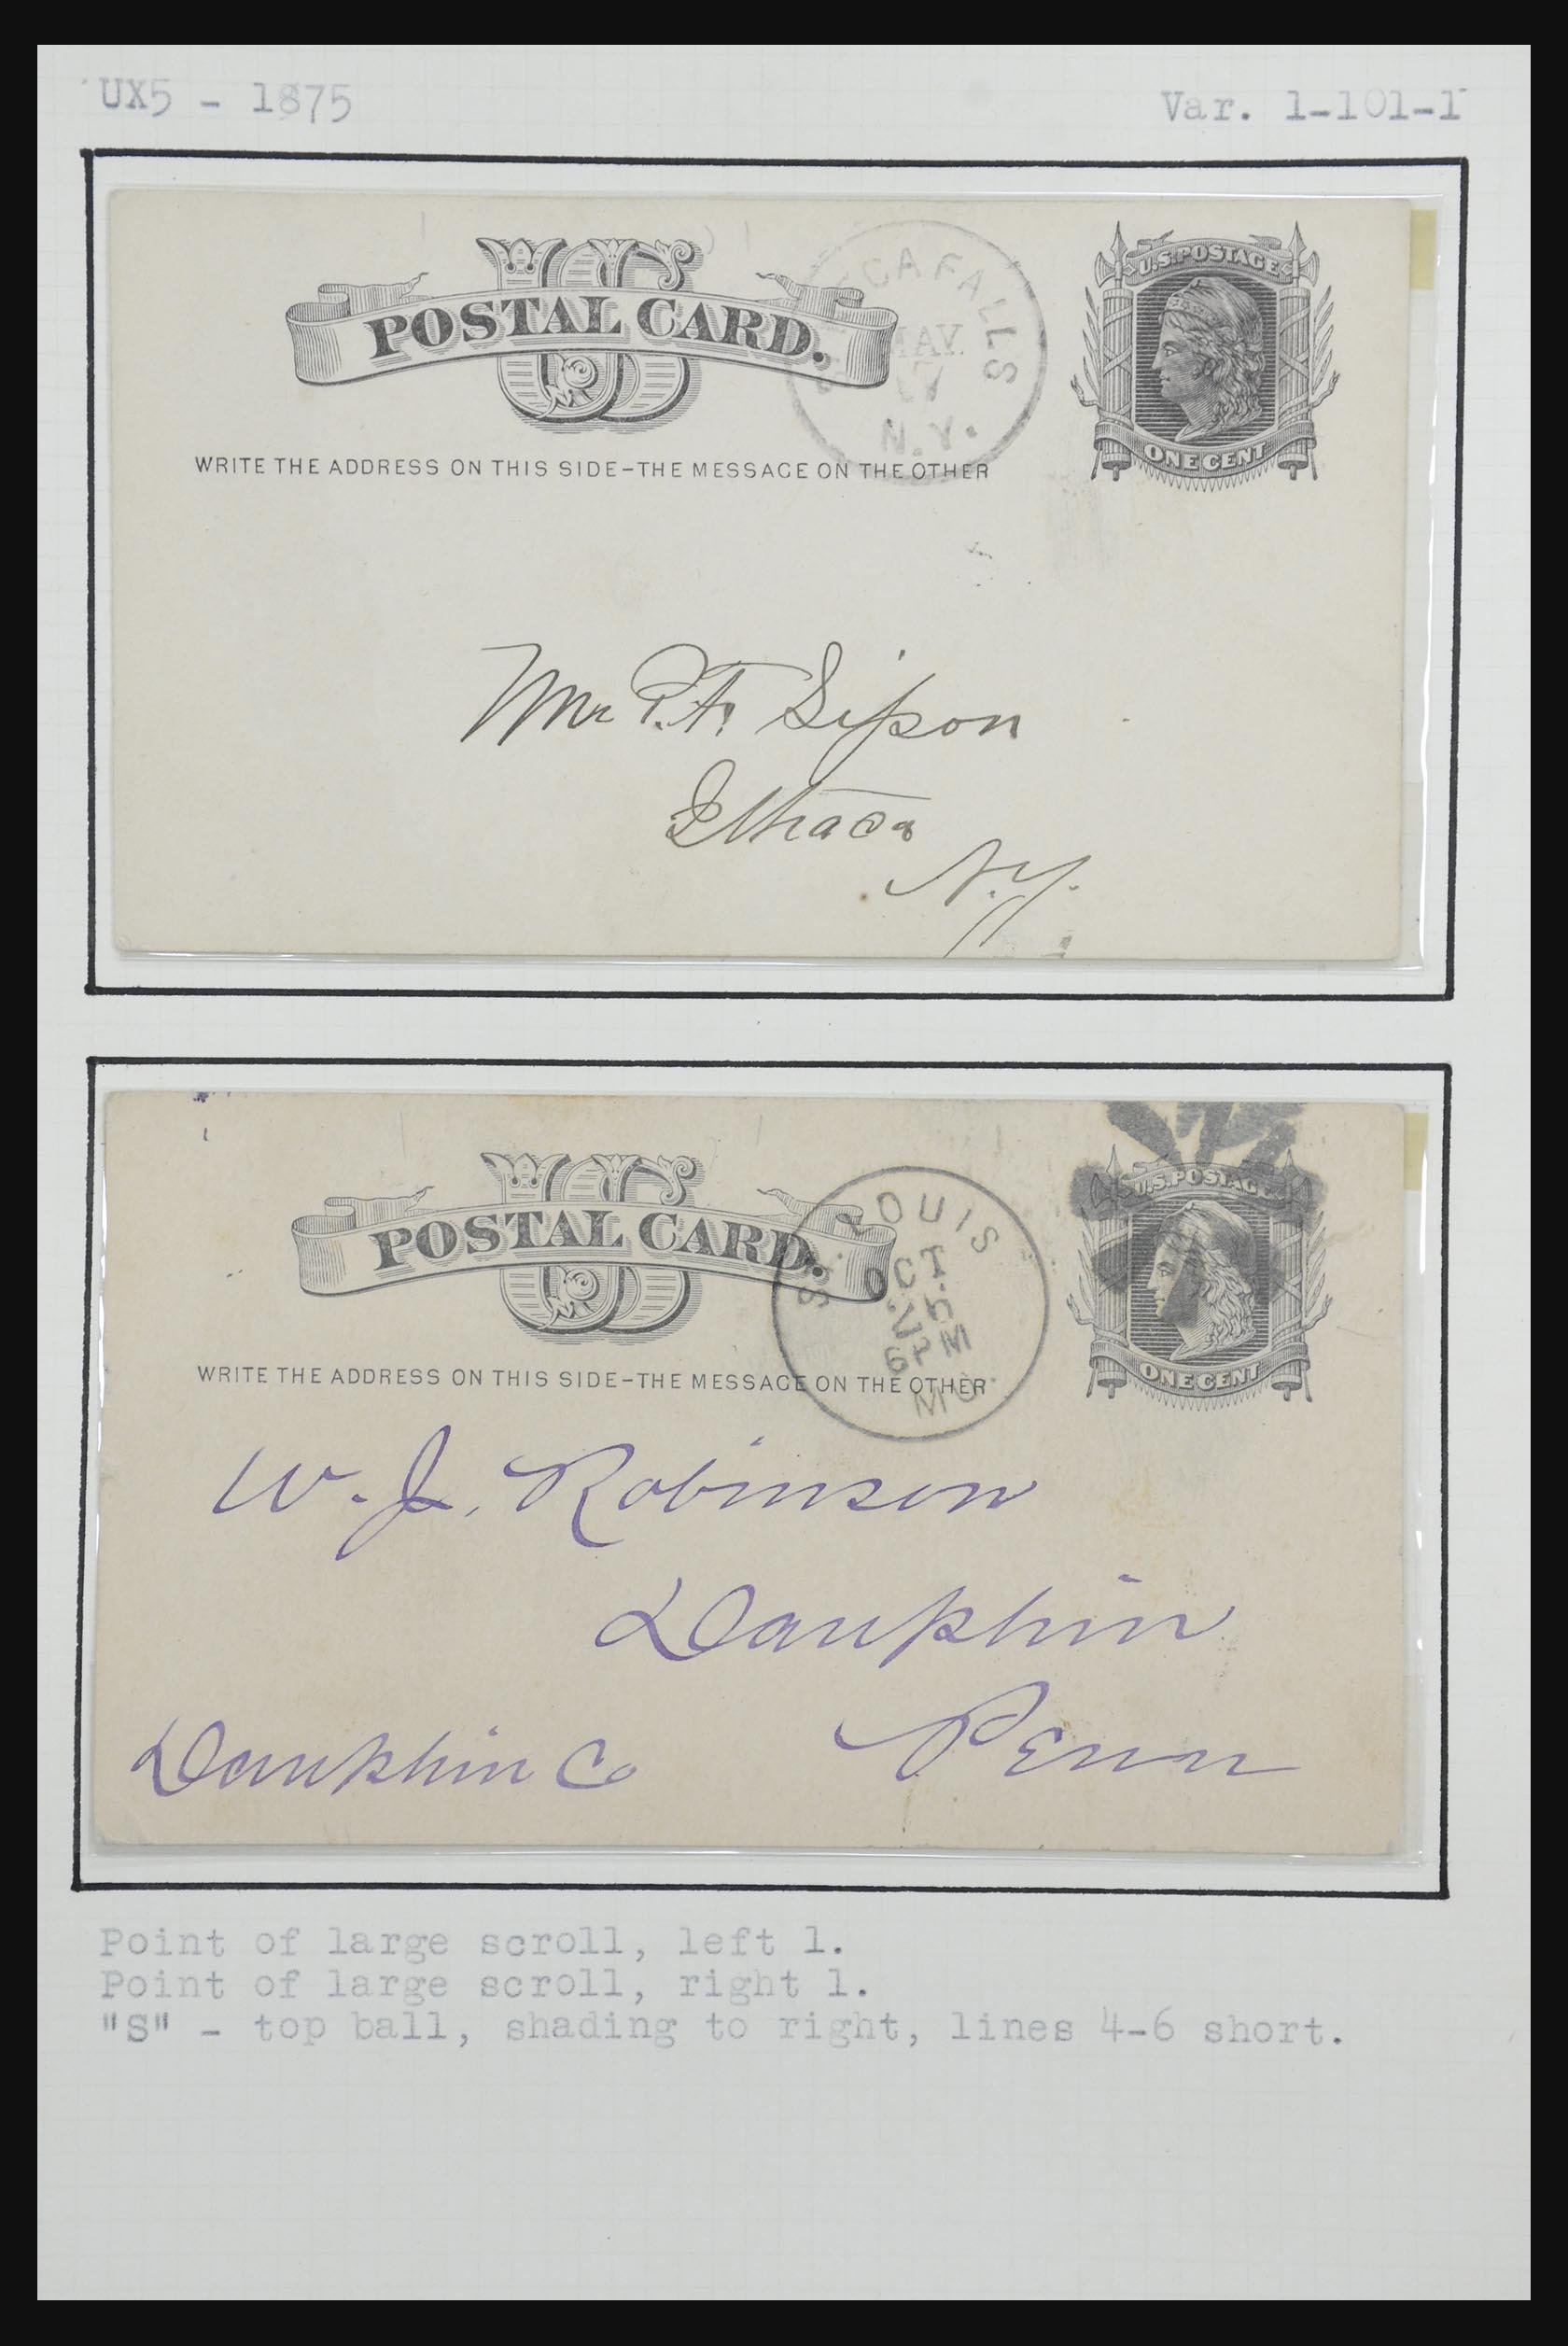 UX5 - 1875
Var. 1-101-1
US
POSTAL CARD.
CA FALLS
MAY.
17
N.Y.
U.S. POSTAGE
ONE CENT
WRITE THE ADDRESS ON THIS SIDE-THE MESSAGE ON THE OTHER
Mr P.F. Sipson
Ithaca
N.Y.
US
POSTAL CARD.
ST. LOUIS
OCT
5
6PM
MO.
U.S. POSTAGE
ONE CENT
WRITE THE ADDRESS ON THIS SIDE-THE MESSAGE ON THE OTHER
W. J. Robinson
Dauphin
Dauphin Co Penn
Point of large scroll, left 1.
Point of large scroll, right 1.
"S" - top ball, shading to right, lines 4-6 short.